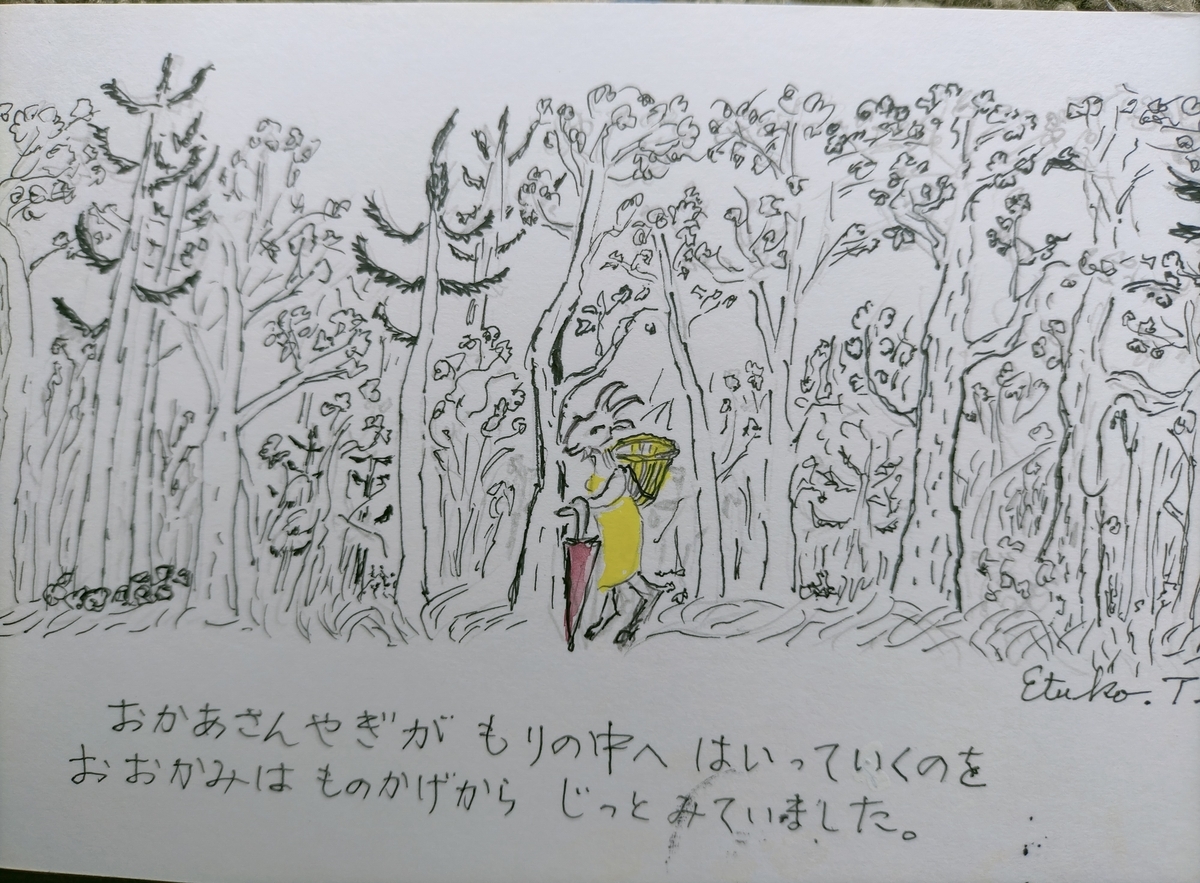 Etuko. T.
おかあさんやぎが もりの中へ はいっていくのを
おおかみは ものかげから じっと みていました。